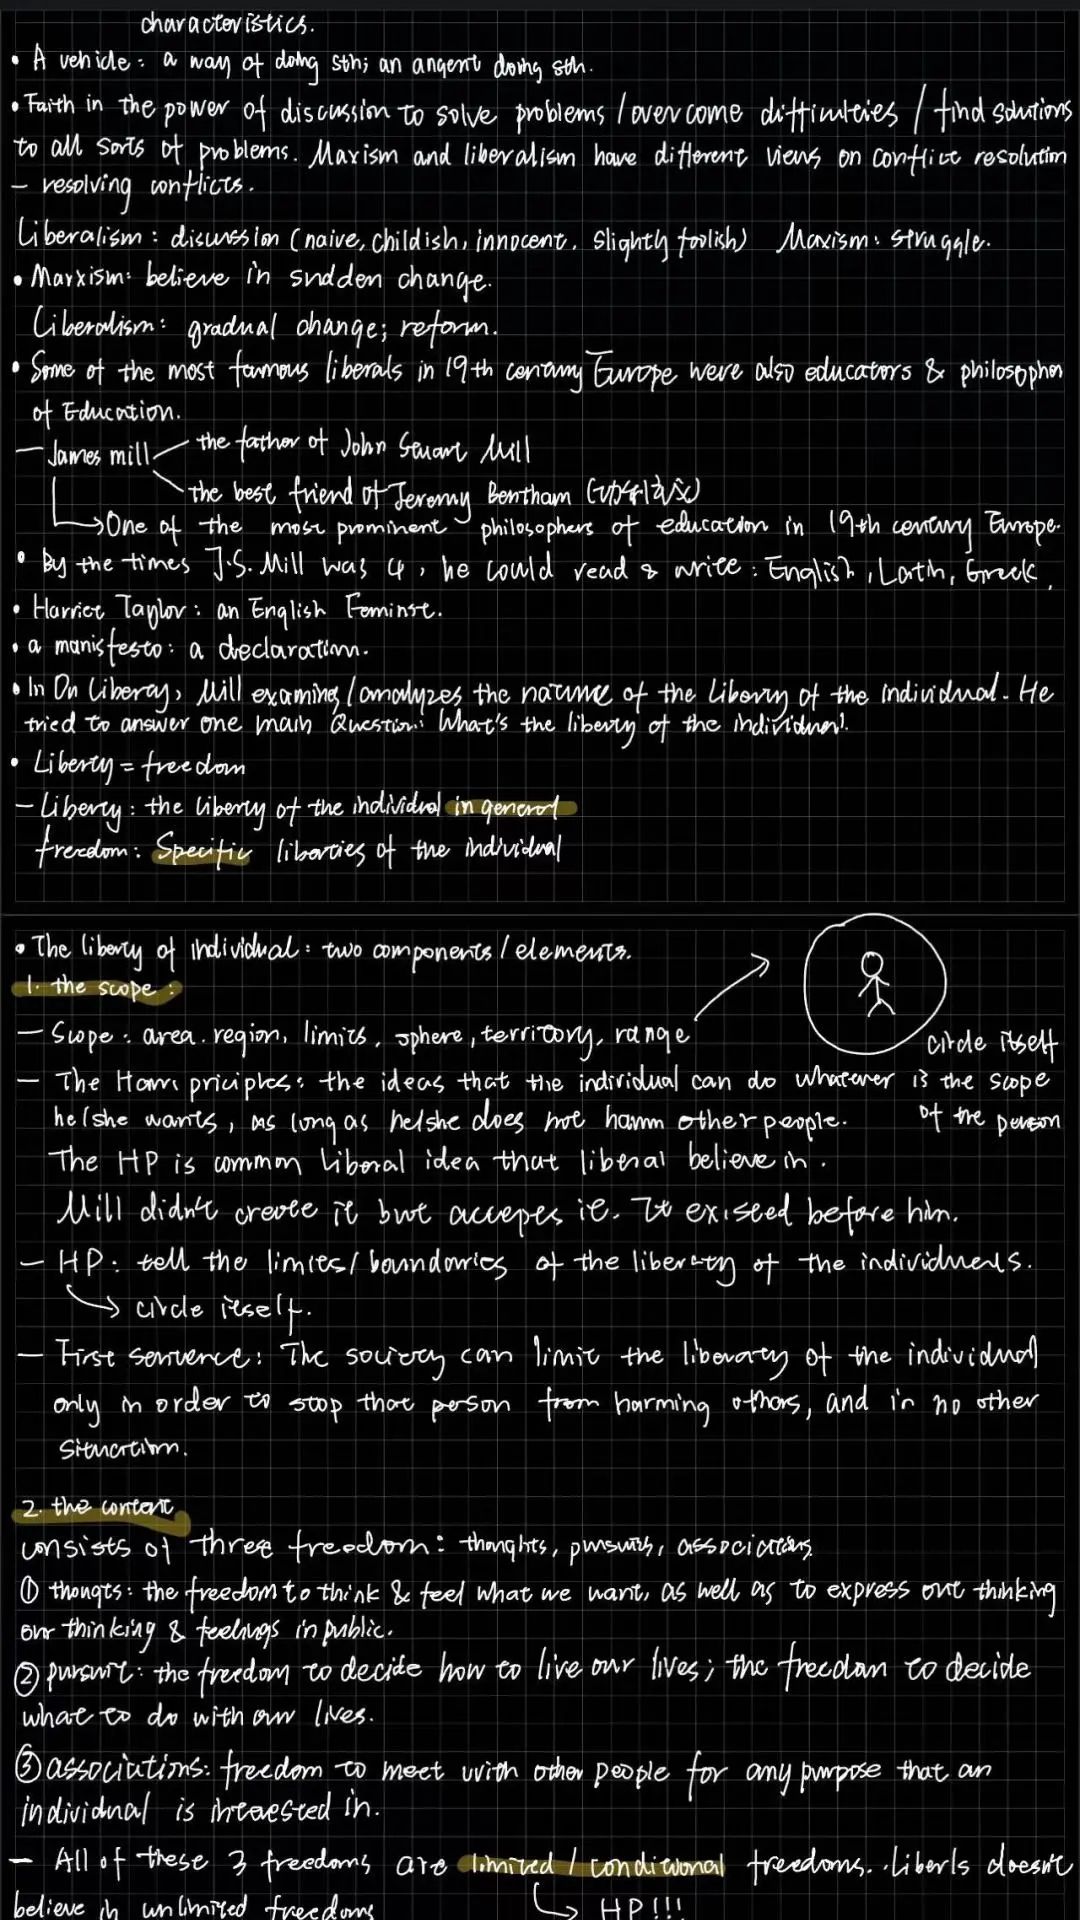 characteristics.
• A vehicle: a way of doing sth; an angent doing sth.
• Faith in the power of discussion to solve problems / overcome difficulties / find solutions
to all sorts of problems. Maxism and liberalism have different views on conflict resolution
– resolving conflicts.
Liberalism: discussion (naive, childish, innocent, slightly foolish) Maxism: struggle.
• Marxism: believe in sudden change.
Liberalism: gradual change; reform.
• Some of the most famous liberals in 19th century Europe were also educators & philosopher
of Education.
– James mill
the father of John Stuart Mill
the best friend of Jeremy Bentham (功利主义)
→ One of the most prominent philosophers of education in 19th century Europe.
• By the times J.S. Mill was 4, he could read & write: English, Latin, Greek.
• Harriet Taylor: an English Feminst.
• a manisfesto: a declaration.
• In On Liberty, Mill examing/analyzes the nature of the liberty of the individual. He
tried to answer one main Question: What's the liberty of the individual?
• Liberty = freedom
– Liberty: the liberty of the individual in general
freedom: Specific liberties of the individual
• The liberty of individual: two components / elements.
1. the scope:
– Scope: area. region, limits, sphere, territory, range
circle itself
– The Harm priciples: the ideas that the individual can do whatever
is the scope
he/she wants, as long as he/she does not harm other people.
of the person
The HP is common liberal idea that liberal believe in.
Mill didn't create it but accepts it. It existed before him.
– HP: tell the limits/boundaries of the liberty of the individuals.
→ circle itself.
– First sentence: The society can limit the liberaty of the individual
only in order to stop that person from harming others, and in no other
situation.
2. the content
consists of three freedom: thoughts, pursuits, associations
① thougts: the freedom to think & feel what we want, as well as to express our thinking
our thinking & feelings in public.
② pursuit: the freedom to decide how to live our lives; the freedom to decide
what to do with our lives.
③ associations: freedom to meet with other people for any purpose that an
individual is interested in.
– All of these 3 freedoms are limited / conditional freedoms. Liberls doesn't
believe in unlimited freedoms
→ HP!!!